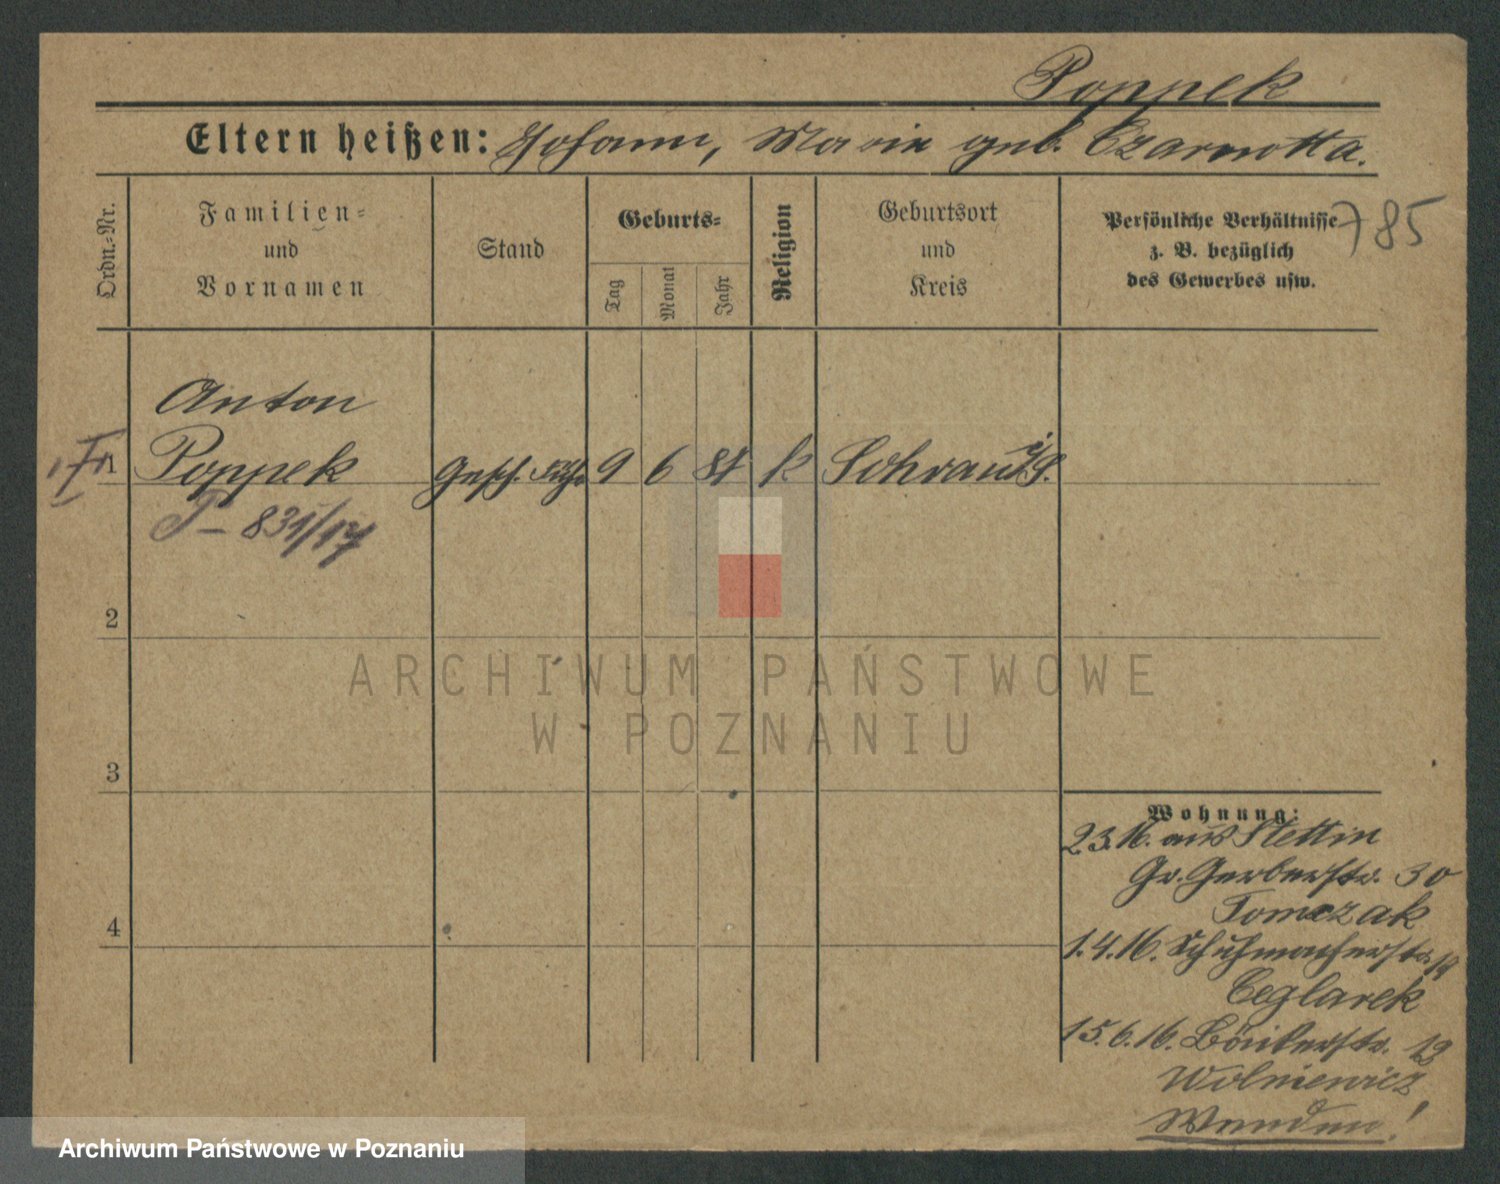 Poppek
Eltern heißen: Johann, Marie geb. Czarnotta.
Ordn.-Nr.
Familien-
und
Vornamen
Stand
Geburts-
Tag
Monat
Jahr
Religion
Geburtsort
und
Kreis
Persönliche Verhältnisse
z. B. bezüglich
des Gewerbes usw.
785
Anton
1 Poppek Gesch. 9 6 84 k Sohrau
831/17
2
3
4
Wohnung:
2.3.16. aus Stettin
Gr. Gerberstr. 30
Tomczak
1.4.16. Schuhmacherstr.
Ceglarek
15.6.16. Böttkerstr. 19
Wolniewicz
Wenden!
ARCHIWUM PAŃSTWOWE
W POZNANIU
Archiwum Państwowe w Poznaniu